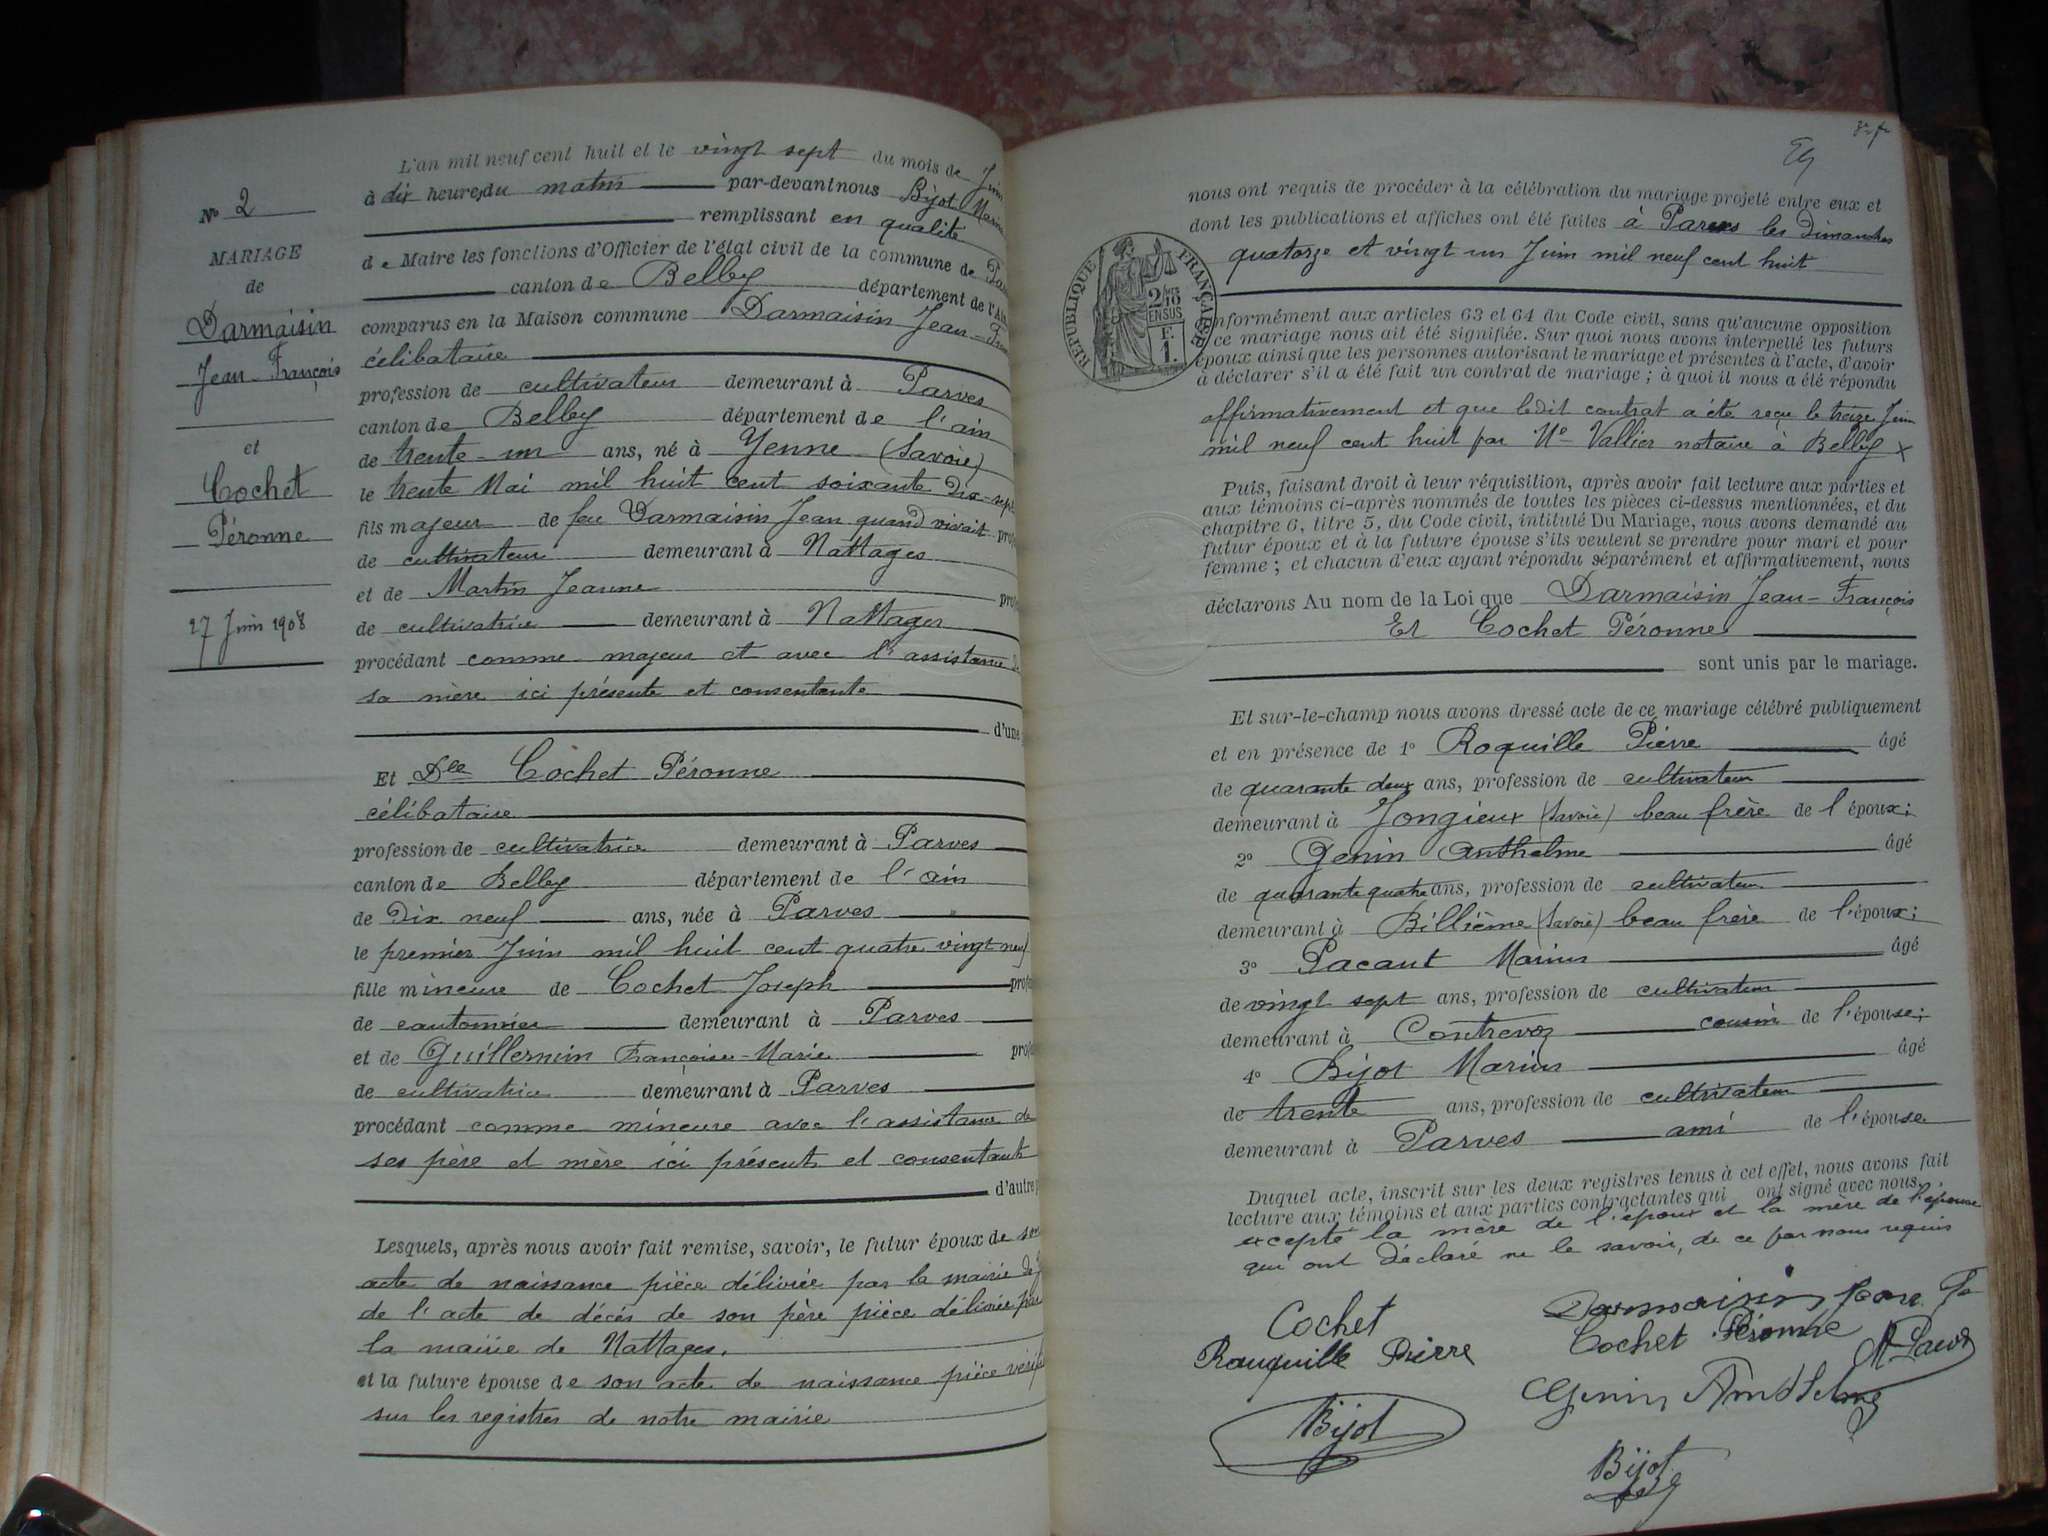 Nº 2
MARIAGE
de
Darmaisin
Jean-François
et
Cochet
Péronne
27 Juin 1908
L'an mil neuf cent huit et le vingt sept du mois de Juin
à dix heures du matin par-devant nous Bijot Marin
remplissant en qualité
de Maire les fonctions d'Officier de l'état civil de la commune de
canton de Belley département de l'Ain
comparus en la Maison commune Darmaisin Jean-Fran
célibataire
profession de cultivateur demeurant à Parves
canton de Belley département de l'ain
de trente-un ans, né à Yenne (Savoie)
le trente Mai mil huit cent soixante Dix-sept
fils majeur de feu Darmaisin Jean quand vivait prof
de cultivateur demeurant à Nattages
et de Martin Jeanne
de cultivatrice demeurant à Nattages
procédant comme majeur et avec l'assistance de
sa mère ici présente et consentante
d'une
Et Dlle Cochet Péronne
célibataire
profession de cultivatrice demeurant à Parves
canton de Belley département de l'ain
de Dix neuf ans, née à Parves
le premier Juin mil huit cent quatre vingt neuf
fille mineure de Cochet Joseph
de cantonnier demeurant à Parves
et de Guillermin Françoise-Marie
de cultivatrice demeurant à Parves
procédant comme mineure avec l'assistance de
ses père et mère ici présents et consentants
d'autre
Lesquels, après nous avoir fait remise, savoir, le futur époux de son
acte de naissance pièce délivrée par la mairie de
de l'acte de décès de son père pièce délivrée par
la mairie de Nattages.
et la future épouse de son acte de naissance pièce
sur les registres de notre mairie
nous ont requis de procéder à la célébration du mariage projeté entre eux et
dont les publications et affiches ont été faites à Parves les Dimanches
quatorze et vingt un Juin mil neuf cent huit
RÉPUBLIQUE FRANÇAISE
2/10
EN SUS
F.
1.
nformément aux articles 63 et 64 du Code civil, sans qu'aucune opposition
ce mariage nous ait été signifiée. Sur quoi nous avons interpellé les futurs
époux ainsi que les personnes autorisant le mariage et présentes à l'acte, d'avoir
à déclarer s'il a été fait un contrat de mariage ; à quoi il nous a été répondu
affirmativement et que ledit contrat a été reçu le treize Juin
mil neuf cent huit par Me Vallier notaire à Belley
Puis, faisant droit à leur réquisition, après avoir fait lecture aux parties et
aux témoins ci-après nommés de toutes les pièces ci-dessus mentionnées, et du
chapitre 6, titre 5, du Code civil, intitulé Du Mariage, nous avons demandé au
futur époux et à la future épouse s'ils veulent se prendre pour mari et pour
femme ; et chacun d'eux ayant répondu séparément et affirmativement, nous
déclarons Au nom de la Loi que Darmaisin Jean-François
Et Cochet Péronne
sont unis par le mariage.
Et sur-le-champ nous avons dressé acte de ce mariage célébré publiquement
et en présence de 1º Roquille Pierre âgé
de quarante deux ans, profession de cultivateur
demeurant à Jongieux (Savoie) beau frère de l'époux;
2º Genin Anthelme âgé
de quarante quatre ans, profession de cultivateur
demeurant à Billième (Savoie) beau frère de l'époux;
3º Pacaut Marius âgé
de vingt sept ans, profession de cultivateur
demeurant à Contrevoz cousin de l'épouse;
4º Bijot Marius âgé
de trente ans, profession de cultivateur
demeurant à Parves ami de l'épouse
Duquel acte, inscrit sur les deux registres tenus à cet effet, nous avons fait
lecture aux témoins et aux parties contractantes qui ont signé avec nous,
excepté la mère de l'époux et la mère de l'épouse
qui ont déclaré ne le savoir, de ce par nous requis
Cochet
Darmaisin Jean
Rouquille Pierre
Cochet Péronne
Genin Anthelme
Bijot
Bijot